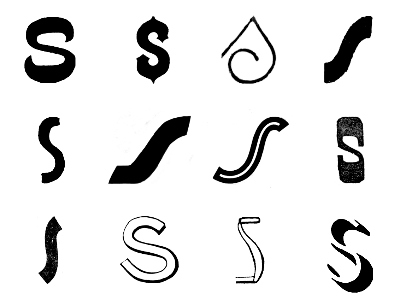 S S S
S S S S
S S S S